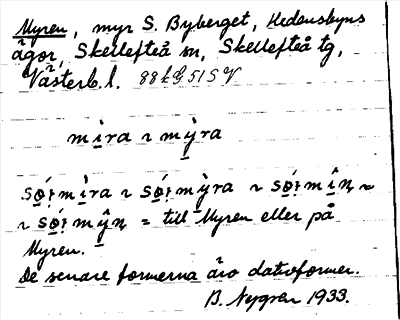 Myren, myr S. Byberget, Hedensbyns
ägor, Skellefteå sn, Skellefteå tg,
Västerb. l. 88
mi̱ra ~ my̱ra
mi̱ra ~ my̱ra ~
~ = till Myren eller på
Myren.
De senare formerna äro dativformer.
B. Nygren 1933.